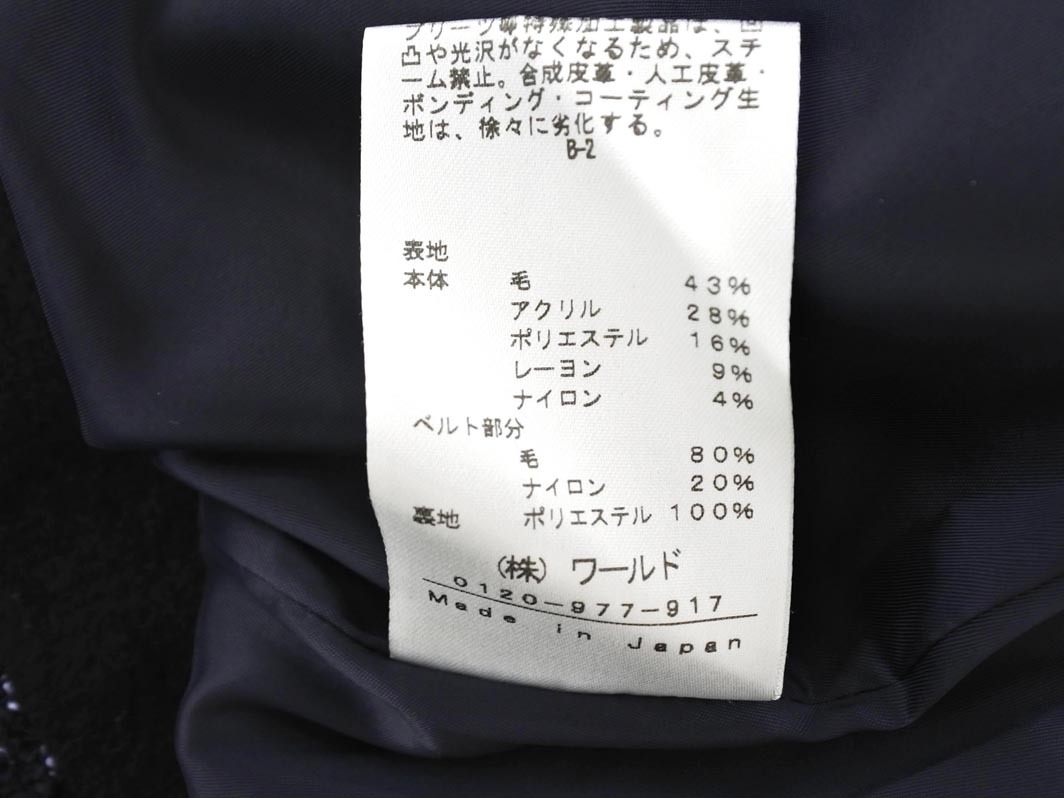 プリーツ等特殊加工製品は、凹
凸や光沢がなくなるため、スチ
ーム禁止。合成皮革・人工皮革・
ボンディング・コーティング生
地は、徐々に劣化する。
B-2
表地
本体 毛 43%
アクリル 28%
ポリエステル 16%
レーヨン 9%
ナイロン 4%
ベルト部分
毛 80%
ナイロン 20%
裏地 ポリエステル 100%
(株) ワールド
0120-977-917
Made in Japan